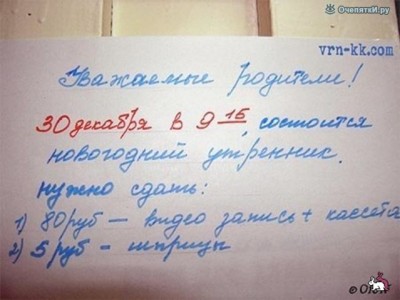 ОчепяткИ.ру
vrn-kk.com
Уважаемые родители!
30 декабря в 9 15, состоится
новогодний утренник.
нужно сдать:
1) 80 руб — видео запись + кассета
2) 5 руб — шприцы